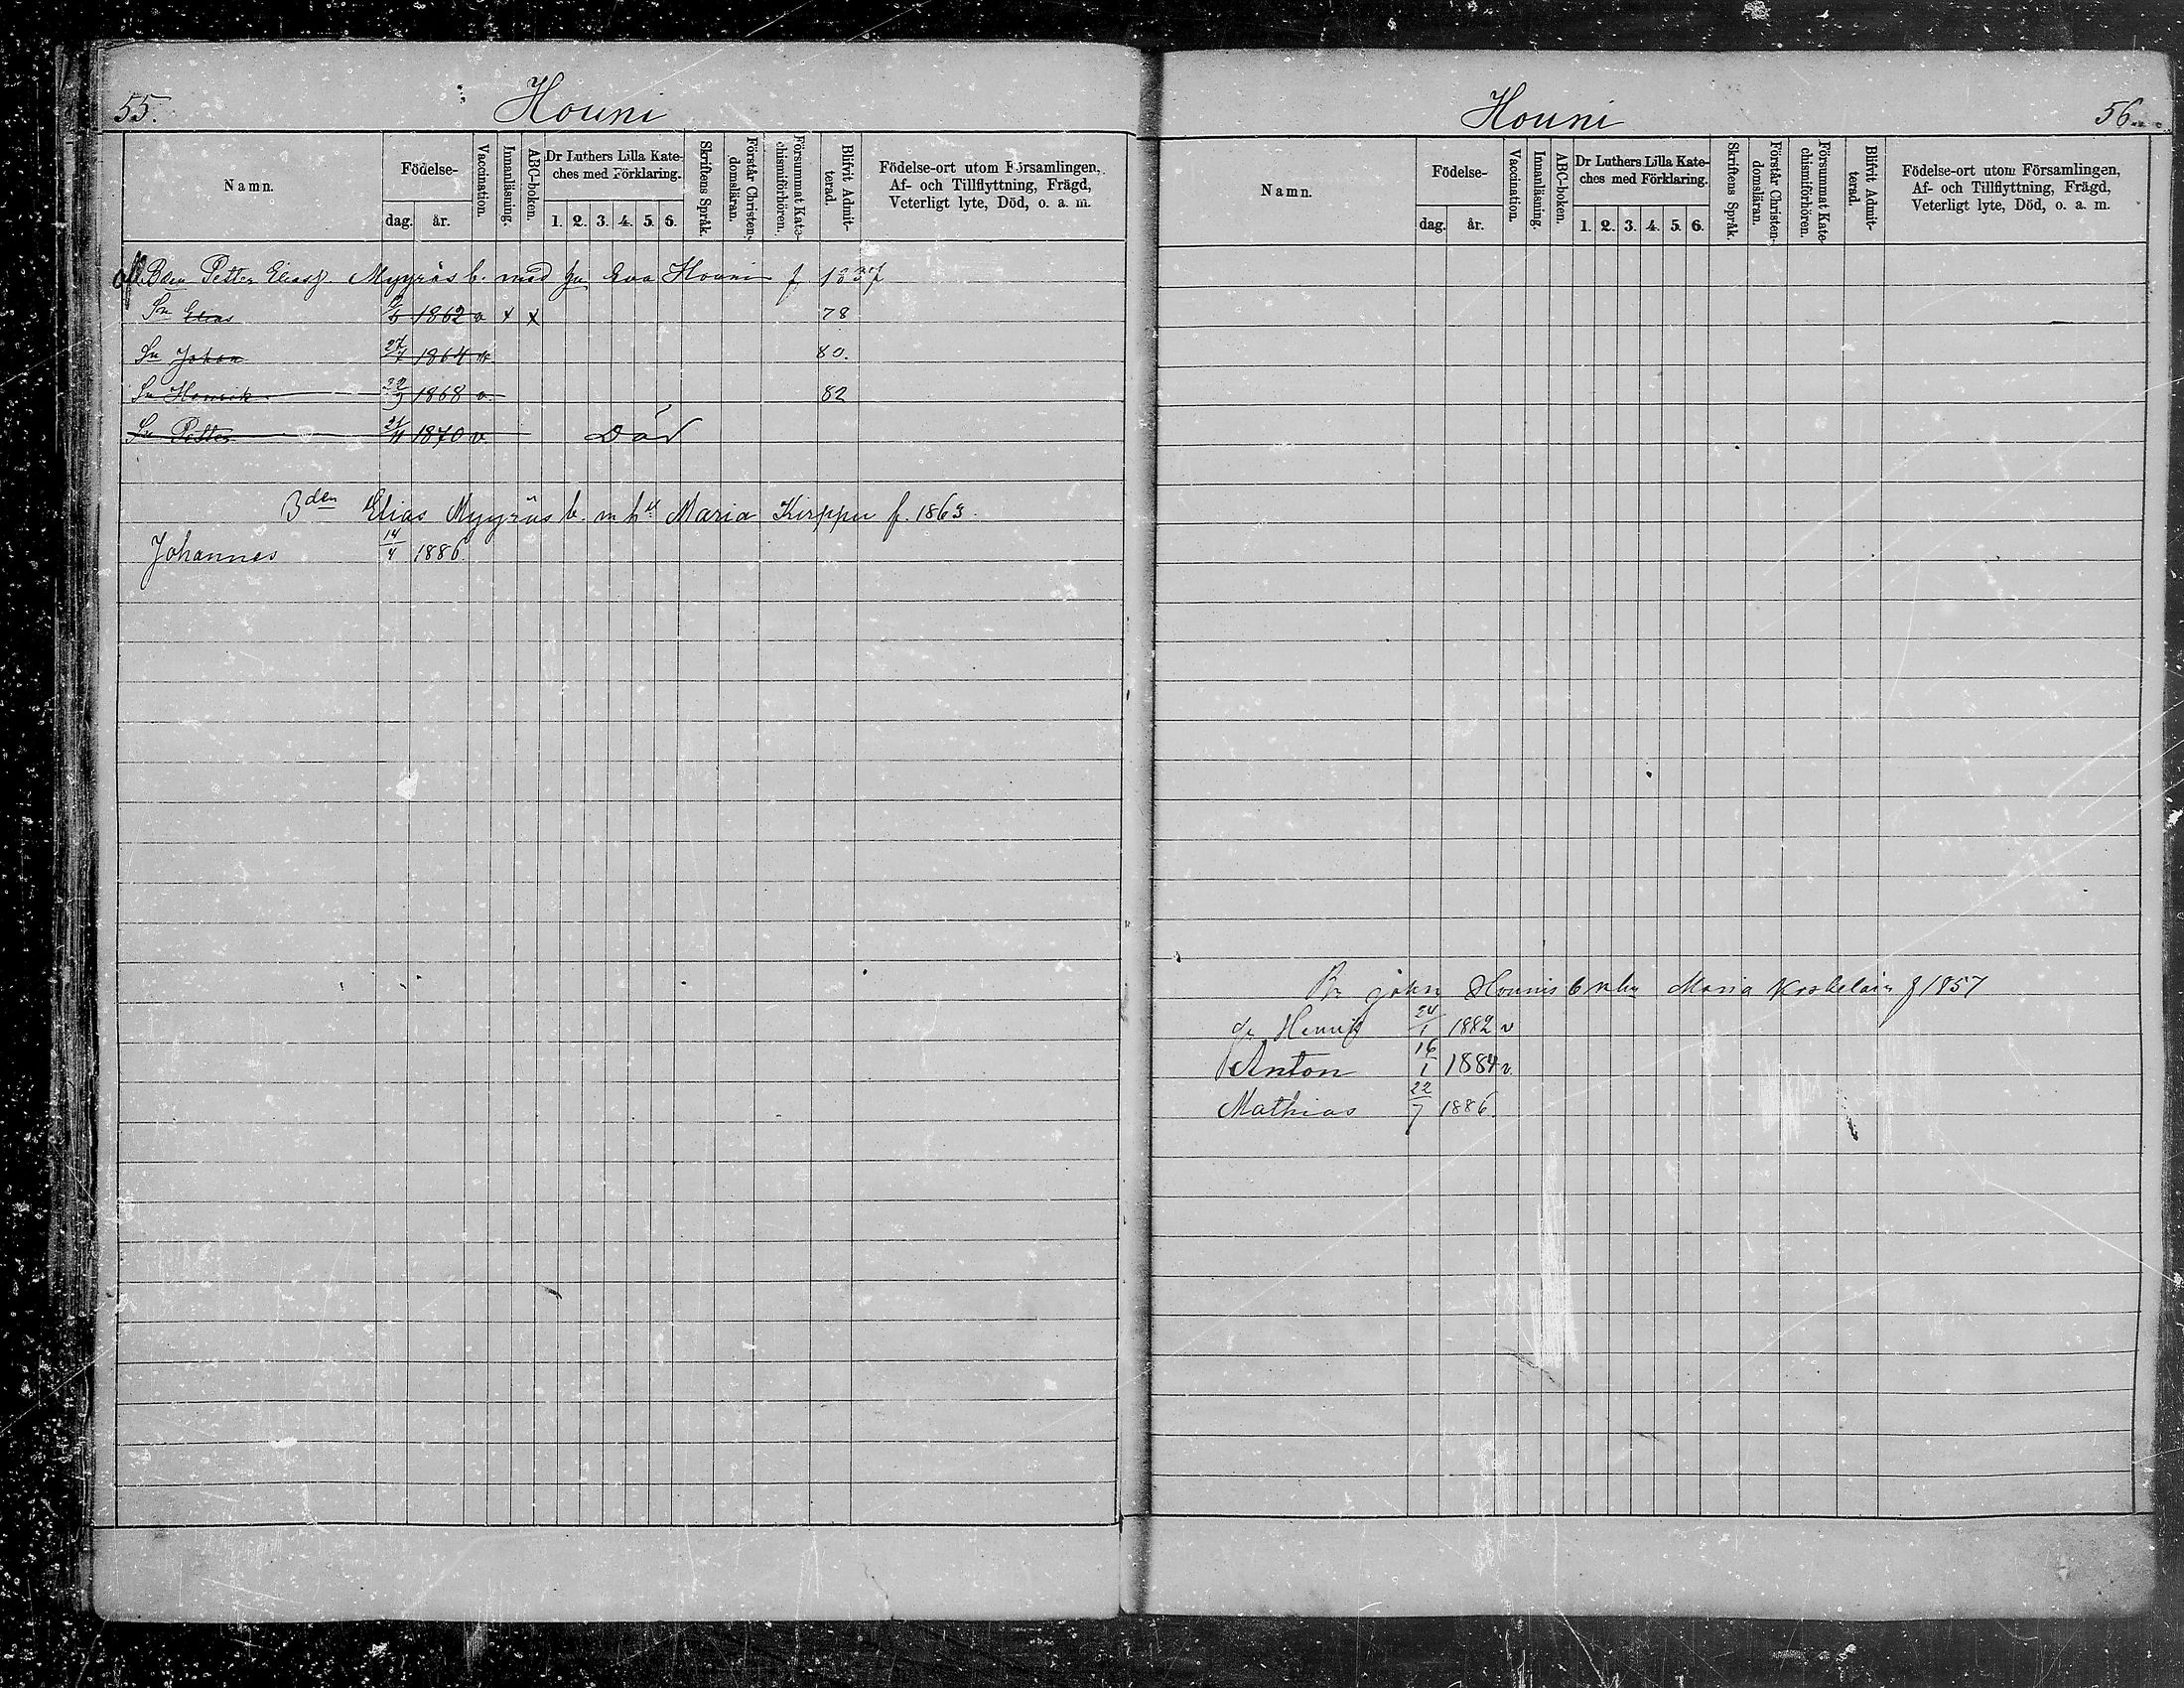 55.
Houni
Namn.
Födelse-
dag.
år.
Vaccination.
Innanläsning.
ABC-boken.
Dr Luthers Lilla Kate-
ches med Förklaring.
1. 2. 3. 4. 5. 6.
Skriftens Språk.
Förstår Christen-
domsläran.
Försummat Kate-
chismiförhören.
Blifvit Admit-
terad.
Födelse-ort utom Församlingen,
Af- och Tillflyttning, Frägd,
Veterligt lyte, Död, o. a. m.
Petter Eliass. Myyräs b. med hu Eva Houni f. 1837
Sn Elias 1862 v x x 78
Sn Johan 27/7 1864 v. 80.
Sn Henrik 22/9 1868 v. 82
Sn Petter 21/11 1870 v. Död
Bden Elias Myyräs b. m hu Maria Kirppu f. 1863.
Johannes 14/4 1886.
Houni
56
Namn.
Födelse-
dag.
år.
Vaccination.
Innanläsning.
ABC-boken.
Dr Luthers Lilla Kate-
ches med Förklaring.
1. 2. 3. 4. 5. 6.
Skriftens Språk.
Förstår Christen-
domsläran.
Försummat Kate-
chismiförhören.
Blifvit Admit-
terad.
Födelse-ort utom Församlingen,
Af- och Tillflyttning, Frägd,
Veterligt lyte, Död, o. a. m.
John Hounis b Maria Koskelain f 1857
Henrik 24/1 1882 v
Anton 16/1 1884 v.
Mathias 22/7 1886.